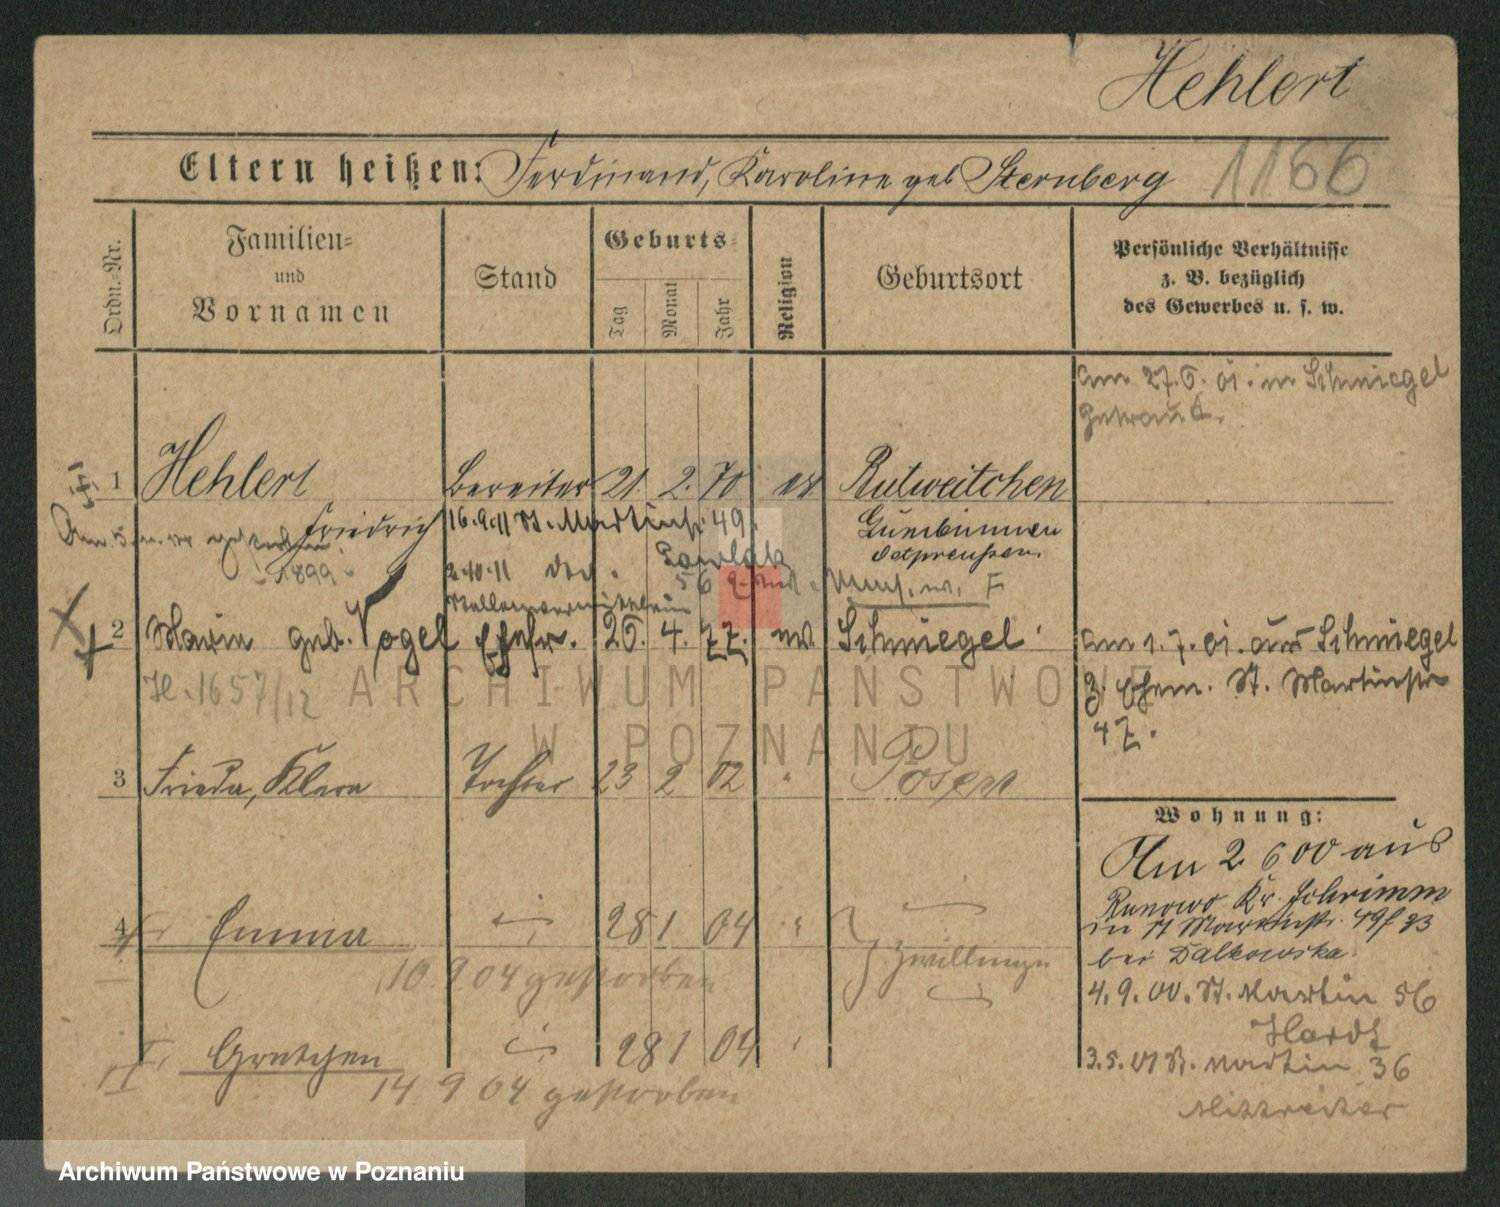 Hehlert
Eltern heißen: Ferdinand, Karoline geb Sternberg
1166
Ordn.-Nr.
Familien-
und
Vornamen
Stand
Geburts-
Tag
Monat
Jahr
Religion
Geburtsort
Persönliche Verhältnisse
z. B. bezüglich
des Gewerbes u. s. w.
am 27. 6. 01. in Schmiegel
getraut.
1 Hehlert Bereiter 21. 2. 70 ev Rutweitchen
Friedrich 16.9.11 St. Martinstr. 49. Gumbinnen
Ostpreussen
1899
2.10.11 Pawlak
56
2 Maria geb. Vogel Ehefr. 26. 4. 77. ev Schmiegel
am 1. 7. 01. aus Schmiegel
z. Ehem. St. Martinstr
47.
H. 1657/12
ARCHIWUM PAŃSTWOWE
W POZNANIU
3 Frieda, Klara Tochter 23 2 02 " Posen
Wohnung:
Am 2 6 00 aus
Runowo Kr. Schrimm
in St Martinstr. 49
bei Dalkowska.
4 Emma 28 1 04 "
10 9 04 gestorben
Zwillinge
4. 9. 00. St. Martin 56
Hardt
Gretchen 28 1 04 "
14 9 04 gestorben
3. 5. 01 St. Martin 36
Archiwum Państwowe w Poznaniu